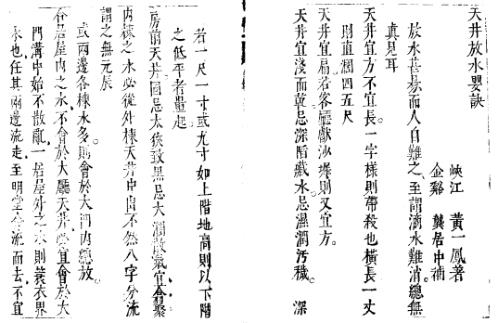 天井放水要訣
峽江 黃一鳳著
金谿 龔居中補
放水甚易而人自難之、至謂滴水難消、總無
真見耳
天井宜方不宜長、一字樣則帶殺也橫長一丈
則直濶四五尺
天井宜扁若客廳獻沙塲則又宜方。
天井宜淺而乾忌深陷藏水忌濕潤汚穢。 深
若一尺一寸或九寸如上階地高則以下階
之低平者量起
房前天井固忌太狹致黑忌大濶散氣宜合聚
内棟之水必從外棟天井中出不然八字分流
謂之無元辰
或兩邊各棟水多則會於大門内總放。
各居屋内之水不會於大廳天井必宜會於大
門溝中始不散亂。一居屋外之水則裳衣界
水也任其兩邊流走、至明堂合流而去不宜